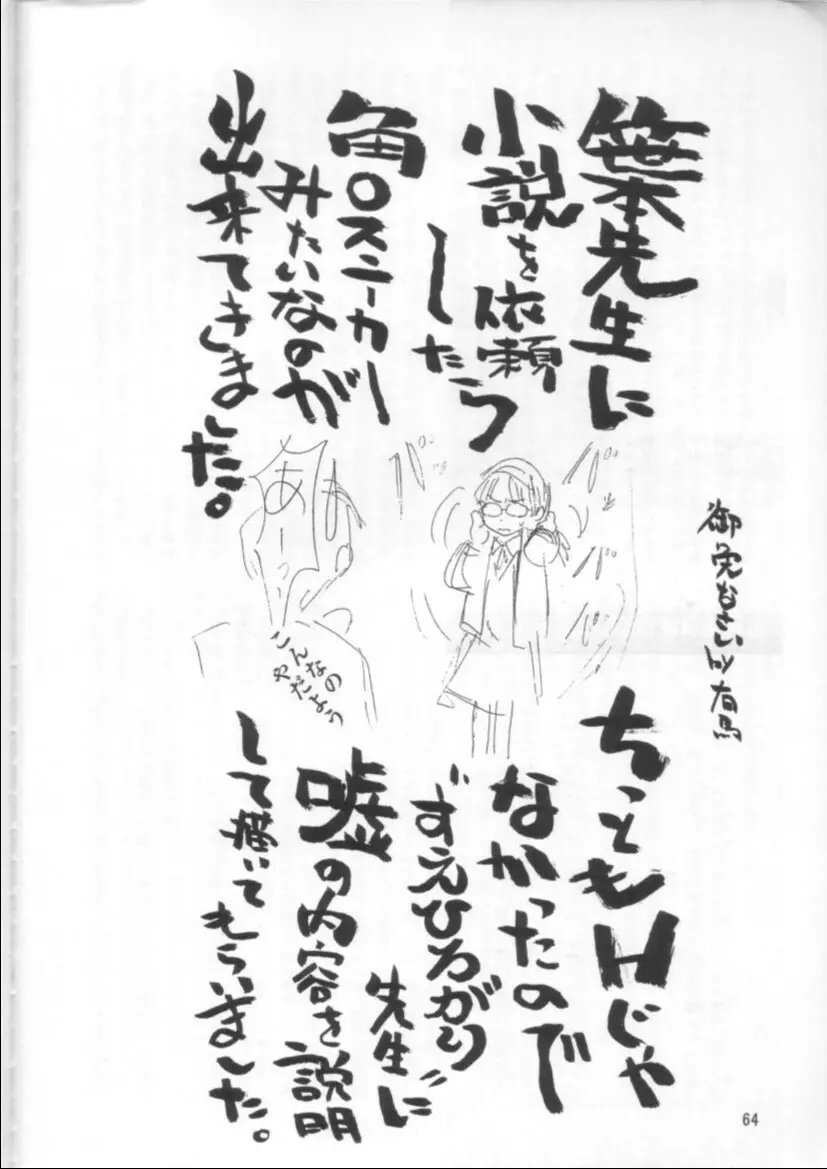 笹本先生に
小説を依頼
したら
角○スニーカー
みたいなのが
出来てきました。
御免なさい by 有馬
バッ
バッ
バッ
バッ
あ
あー
こんなの
やだよう
ちっともHじゃ
なかったので
"すえひろがり"
先生に
嘘の内容を説明
して描いて
もらいました。
64